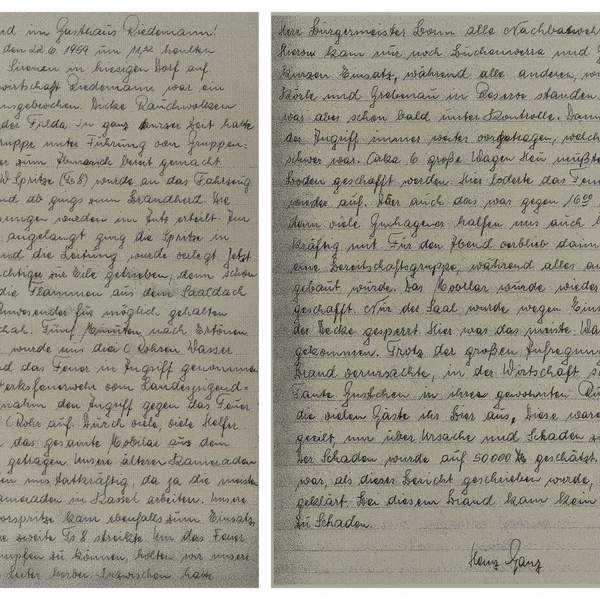 rd im Gasthaus Riedemann!
den 22.6.1959 um 11,42 heulten
Sirenen im hiesigen Dorf auf
wirtschaft Riedemann war ein
usgebrochen. Dicke Rauchwolken
der Fulda. In ganz kurzer Zeit hatte
ruppe unter Führung von Gruppen-
er zum Abmarsch bereit gemacht
Spritze (Ts 8) wurde an das Fahrzeug
nd ab gings zum Brandherd. Die
ungen wurden im Auto erteilt. Am
angelangt ging die Spritze in
nd die Leitung wurde verlegt. Jetzt
chtiger zur Eile getrieben, denn schon
die Flammen aus dem Saaldach
Anwesender für möglich gehalten
hah. Fünf Minuten nach Ertönen
wurde uns drei C Rohren Wasser
d das Feuer in Angriff genommen
erksfeuerwehr vom
nahm den Angriff gegen das Feuer
C Rohr auf. Durch viele, viele Helfer
das gesamte Mobilar aus dem
getragen. Unsere älteren Kameraden
en uns tatkräftig, da ja die meisten
ameraden in Kassel arbeiten. Unsere
orspritze kam ebenfalls zum Einsatz
ie zweite Ts 8 streikte. Um das Feuer
mpfen zu können, holten wir unsere
Leiter herbei. Inzwischen hatte
Herr Bürgermeister Bonn alle Nachbarweh
Hiervon kam nur noch Büchenwerra und G
kurzen Einsatz, während alle anderen, wi
Körle und Grebenau in Reserve standen.
war aber schon bald unter Kontrolle. Dann
der Angriff immer weiter vorgetragen, welch
schwer war. Cirka 6 große Wagen Heu mußte
Boden geschafft werden. Hier loderte das Feu
wieder auf. Aber auch das war gegen 16,00
denn viele Guxhagener halfen uns auch h
kräftig mit. Für den Abend verblieb dann
eine Bereitschaftsgruppe, während alles a
gebaut wurde. Das Mobilar wurde wieder
geschafft. Nur der Saal wurde wegen Einst
der Decke gesperrt. Hier was das meiste Wa
gekommen. Trotz der großen Aufregun
Brand verursachte, in der Wirtschaft s
Tante Gustchen in ihrer gewohnten Ru
die vielen Gäste ihr Bier aus. Diese ware
geeilt um über Ursache und Schaden z
Der Schaden wurde auf 50000 geschätzt.
war, als dieser Bericht geschrieben wurde,
geklärt. Bei diesem Brand kam kein
zu Schaden.
Heinz Ganz